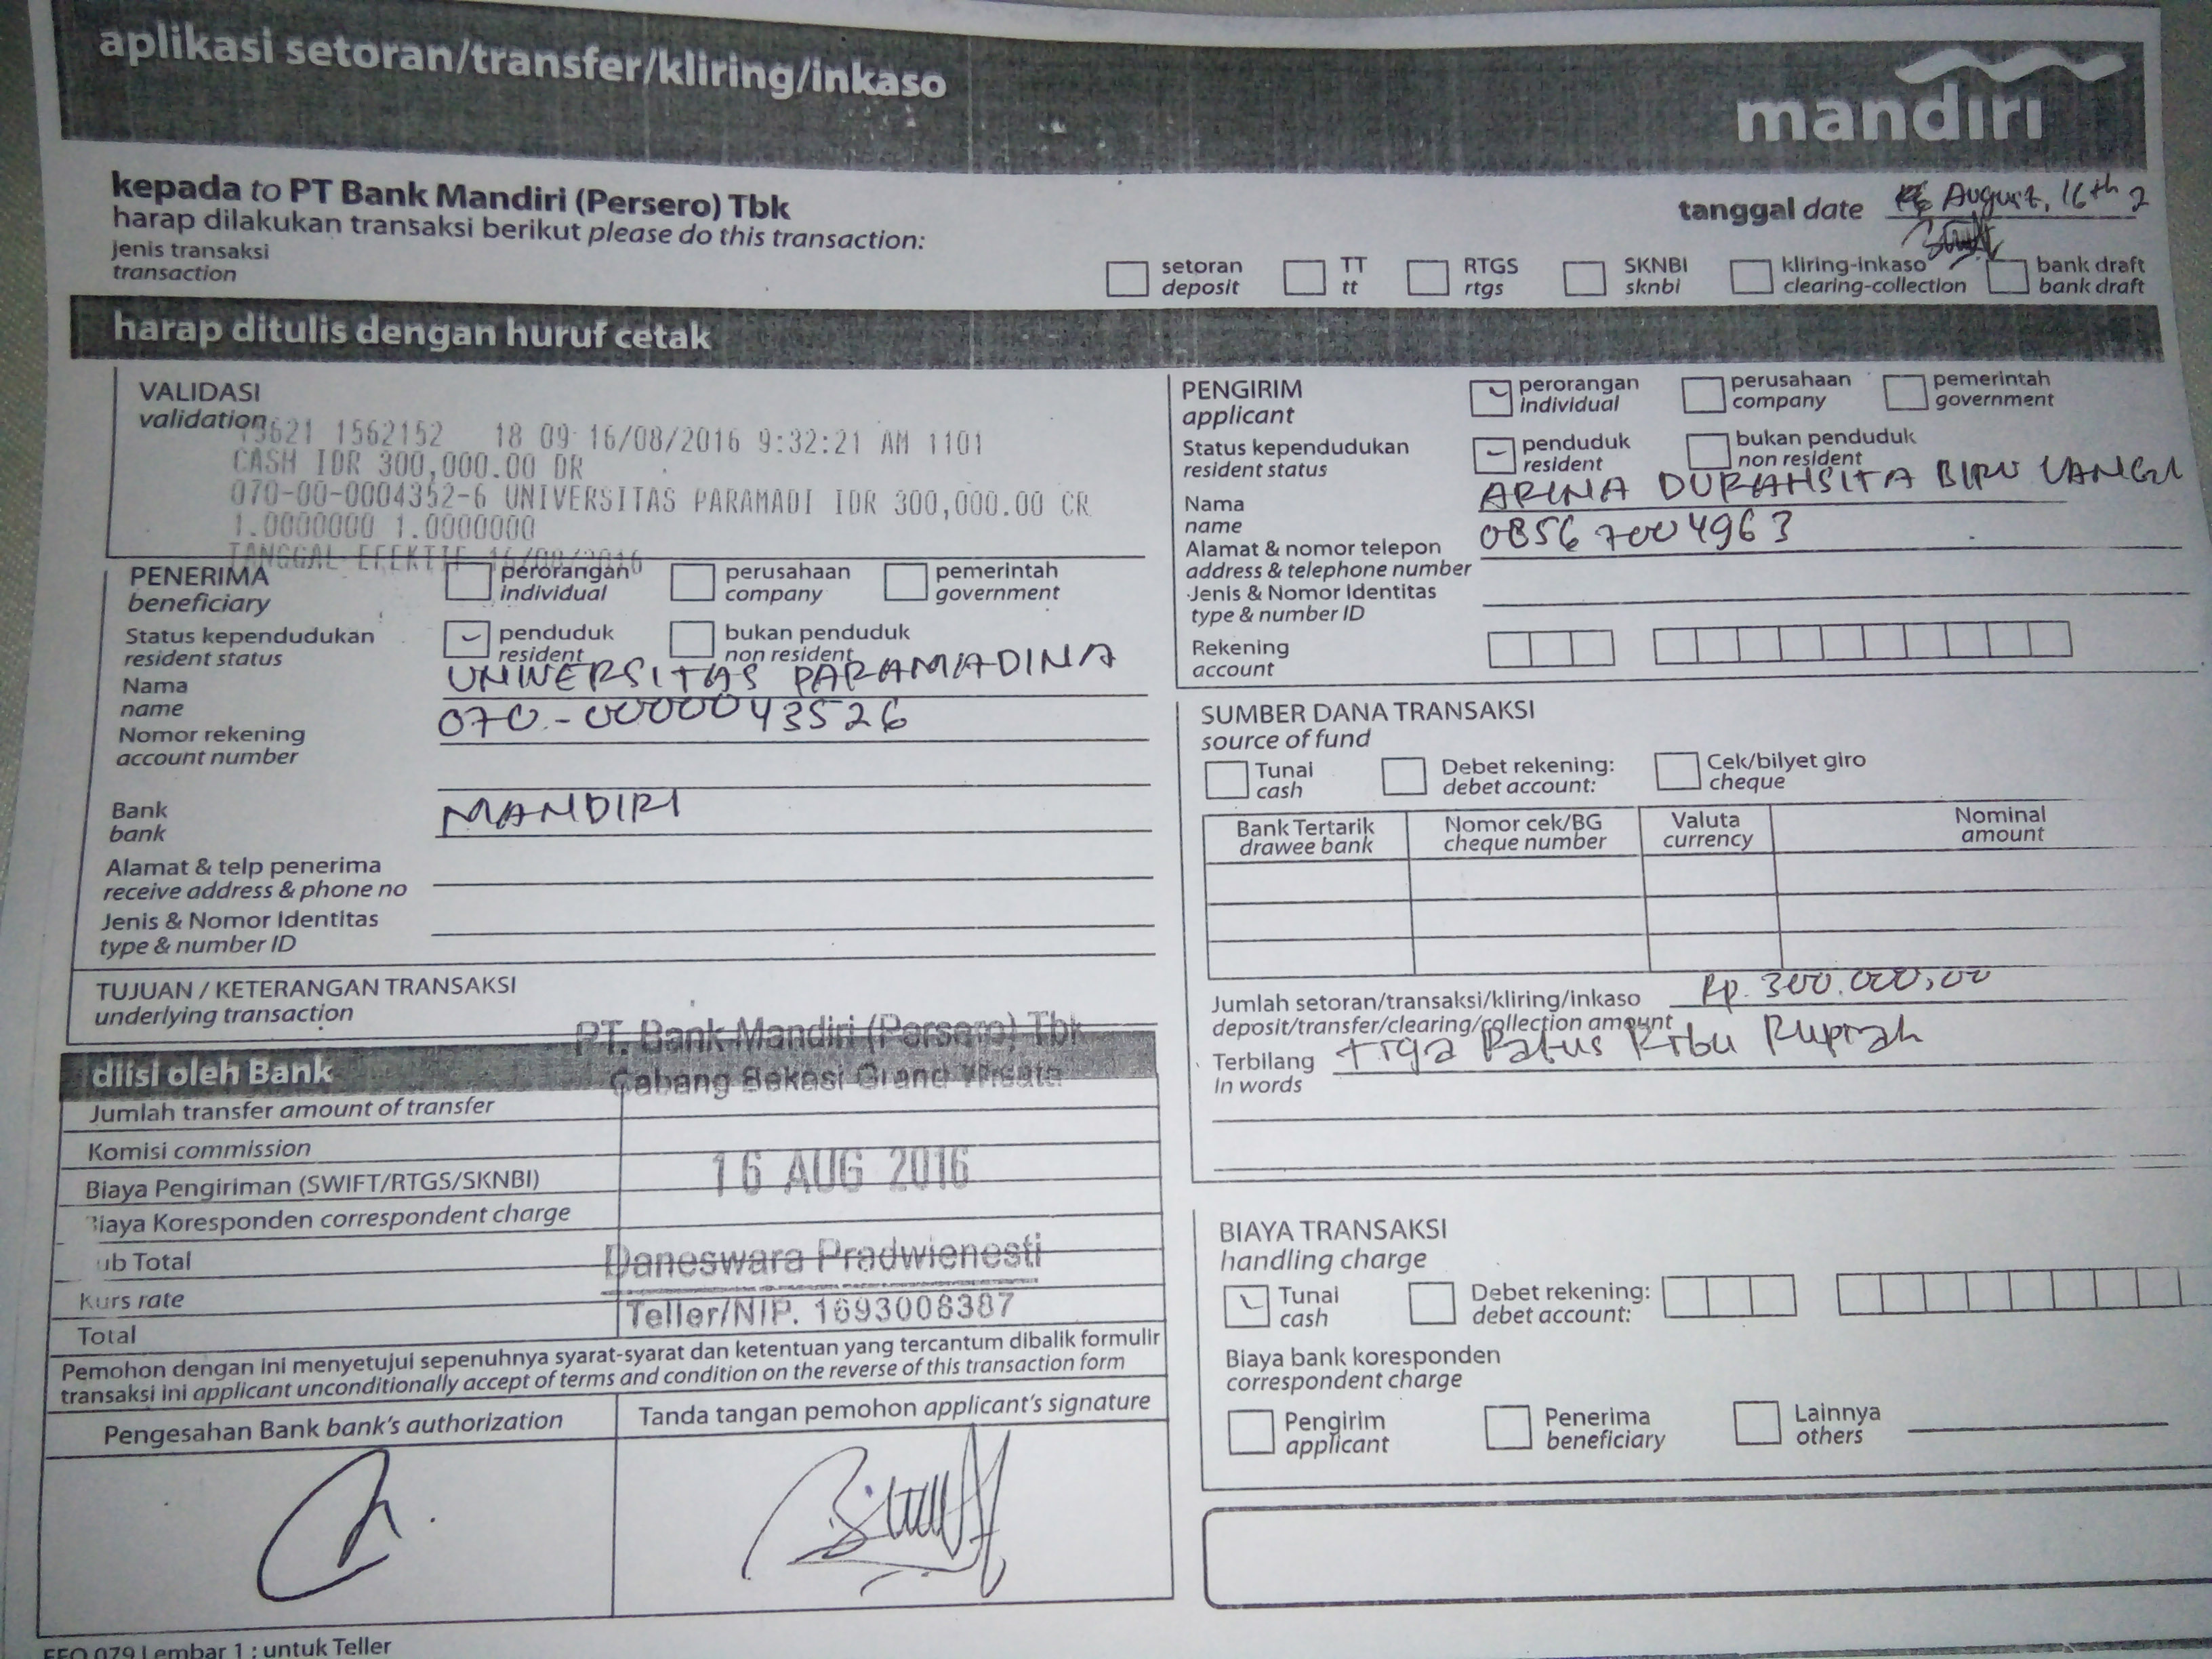 aplikasi setoran/transfer/kliring/inkaso
mandiri
kepada to PT Bank Mandiri (Persero) Tbk
harap dilakukan transaksi berikut please do this transaction:
tanggal date August, 16th 2
jenis transaksi
transaction
setoran
deposit
TT
tt
RTGS
rtgs
SKNBI
sknbi
kliring-inkaso
clearing-collection
bank draft
bank draft
harap ditulis dengan huruf cetak
VALIDASI
validation
1562152 18 09 16/08/2016 9:32:21 AM 1101
CASH IDR 300,000.00 DR
070-00-0004352-6 UNIVERSITAS PARAMADI IDR 300,000.00 CR
1.0000000 1.0000000
TANGGAL EFEKTIF 16/08/2016
PENERIMA
beneficiary
perorangan
individual
perusahaan
company
pemerintah
government
Status kependudukan
resident status
penduduk
resident
bukan penduduk
non resident
Nama
name
UNIVERSITAS PARAMADINA
Nomor rekening
account number
070-0000043526
Bank
bank
MANDIRI
Alamat & telp penerima
receive address & phone no
Jenis & Nomor Identitas
type & number ID
TUJUAN / KETERANGAN TRANSAKSI
underlying transaction
PT. Bank Mandiri (Persero) Tbk
Cabang Bekasi Grand Wisata
diisi oleh Bank
Jumlah transfer amount of transfer
Komisi commission
Biaya Pengiriman (SWIFT/RTGS/SKNBI)
16 AUG 2016
iaya Koresponden correspondent charge
ub Total
Daneswara Pradwienesti
Kurs rate
Teller/NIP. 1693008387
Total
Pemohon dengan ini menyetujui sepenuhnya syarat-syarat dan ketentuan yang tercantum dibalik formulir
transaksi ini applicant unconditionally accept of terms and condition on the reverse of this transaction form
Pengesahan Bank bank's authorization
Tanda tangan pemohon applicant's signature
FFO 079 Lembar 1 : untuk Teller
PENGIRIM
applicant
perorangan
individual
perusahaan
company
pemerintah
government
Status kependudukan
resident status
penduduk
resident
bukan penduduk
non resident
Nama
name
ARINA DURAHSITA BIRU
Alamat & nomor telepon
address & telephone number
08567004963
Jenis & Nomor Identitas
type & number ID
Rekening
account
SUMBER DANA TRANSAKSI
source of fund
Tunai
cash
Debet rekening:
debet account:
Cek/bilyet giro
cheque
Bank Tertarik
drawee bank
Nomor cek/BG
cheque number
Valuta
currency
Nominal
amount
Jumlah setoran/transaksi/kliring/inkaso
deposit/transfer/clearing/collection amount
Rp. 300.000,00
Terbilang
in words
Tiga Ratus Ribu Rupiah
BIAYA TRANSAKSI
handling charge
Tunai
cash
Debet rekening:
debet account:
Biaya bank koresponden
correspondent charge
Pengirim
applicant
Penerima
beneficiary
Lainnya
others